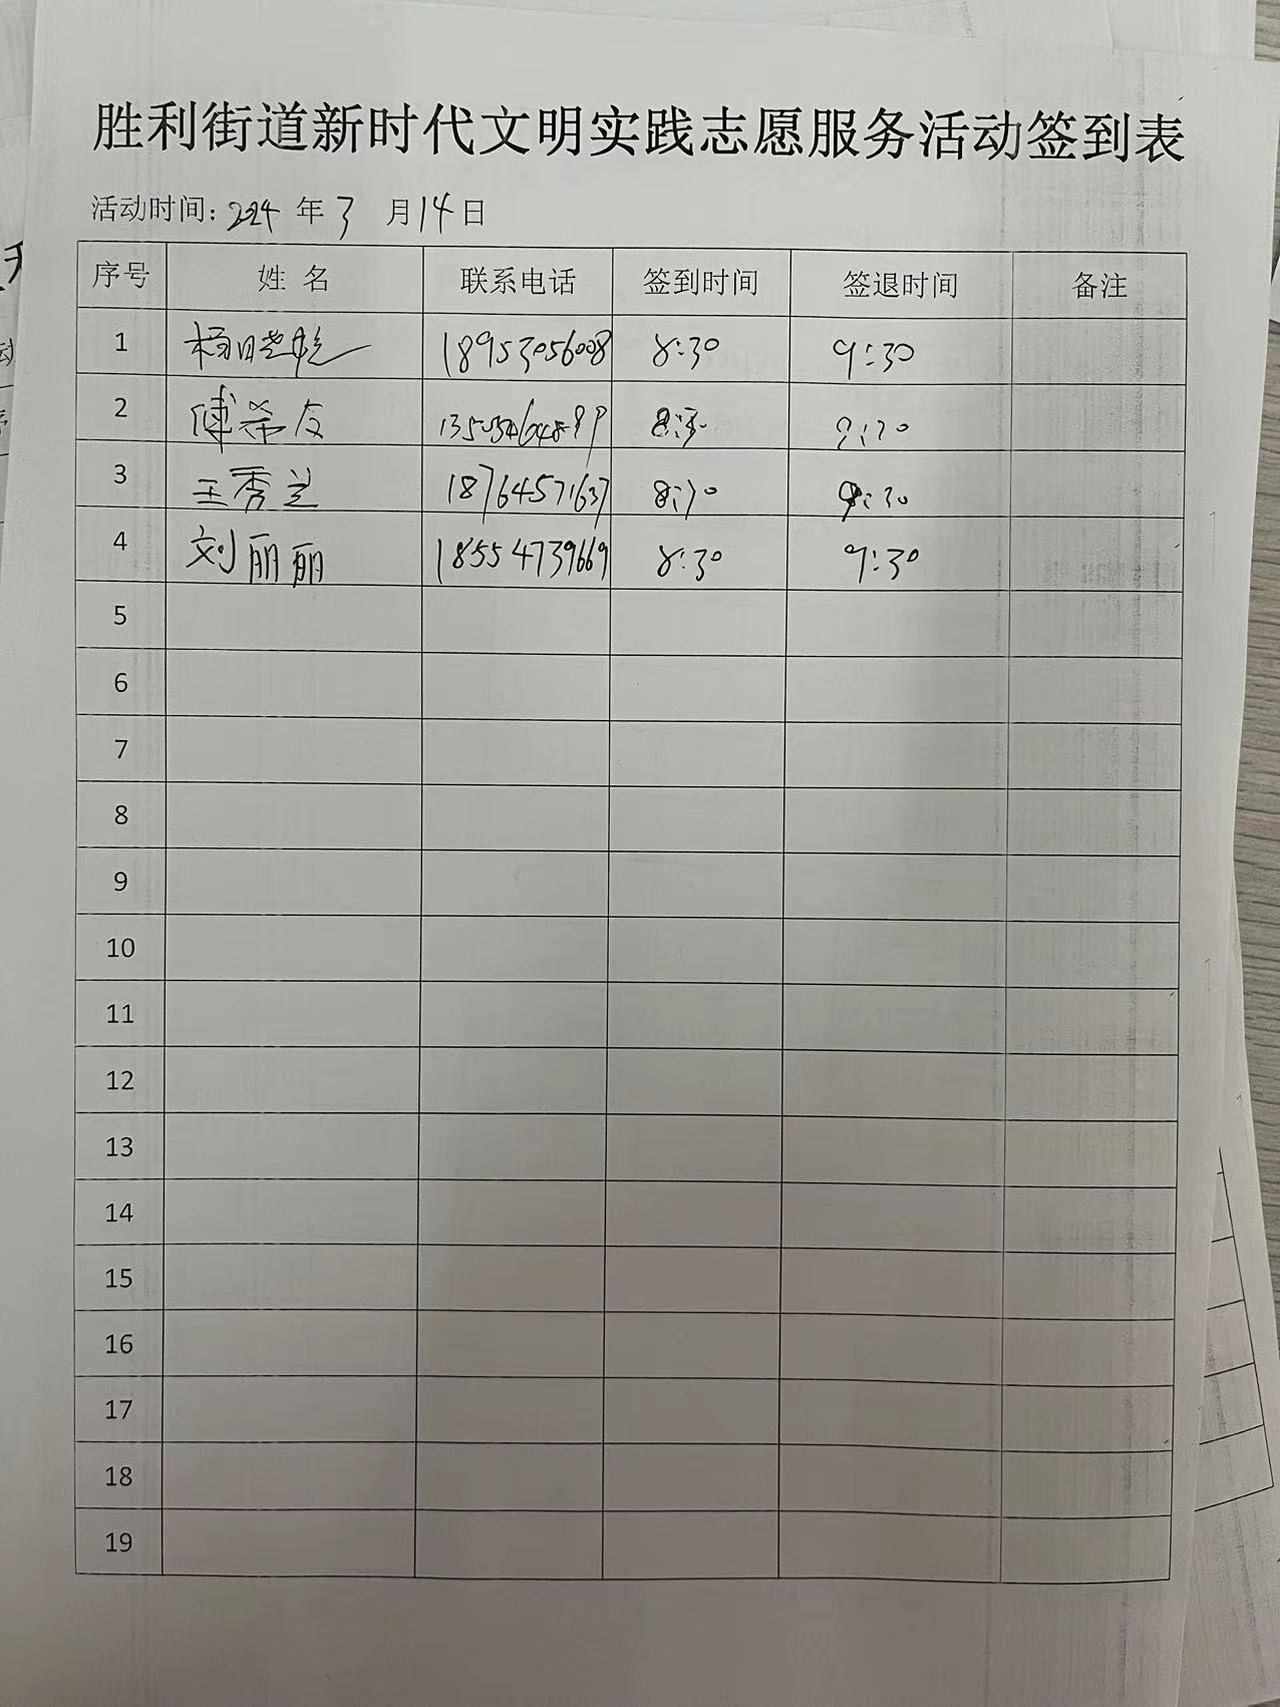 胜利街道新时代文明实践志愿服务活动签到表
活动时间: 2024 年 3 月 14 日
序号 姓 名 联系电话 签到时间 签退时间 备注
1 18953056008 8:30 9:30
2 傅希友 8:30 9:30
3 王秀兰 18764571637 8:30 9:30
4 刘丽丽 18554739669 8:30 9:30
5
6
7
8
9
10
11
12
13
14
15
16
17
18
19